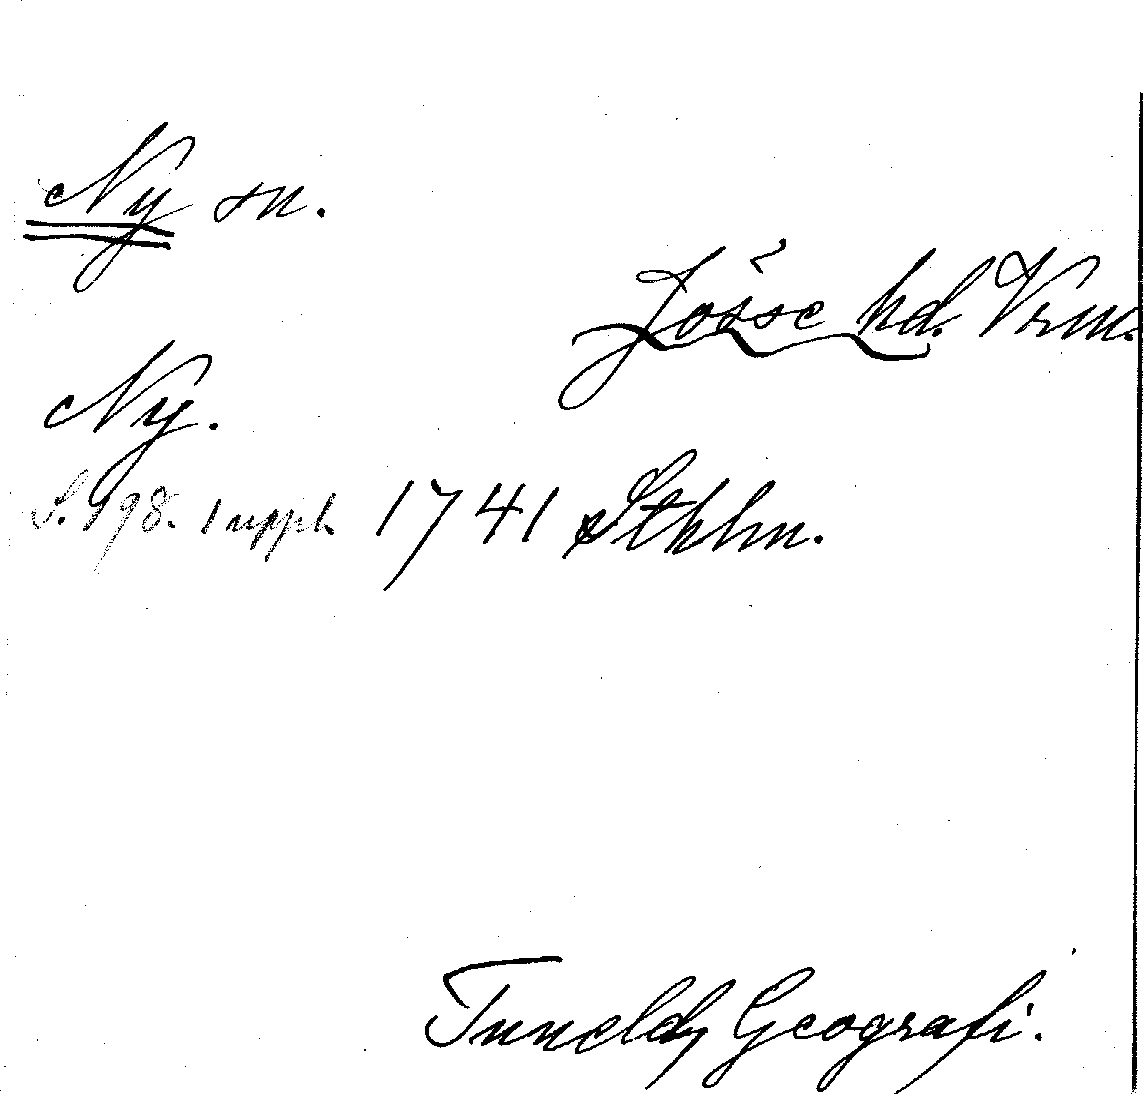 Ny sn.
Jösse hd. Vrm.
Ny.
S. 198. 1 uppl. 1741 Sthlm.
Tunelds Geografi.